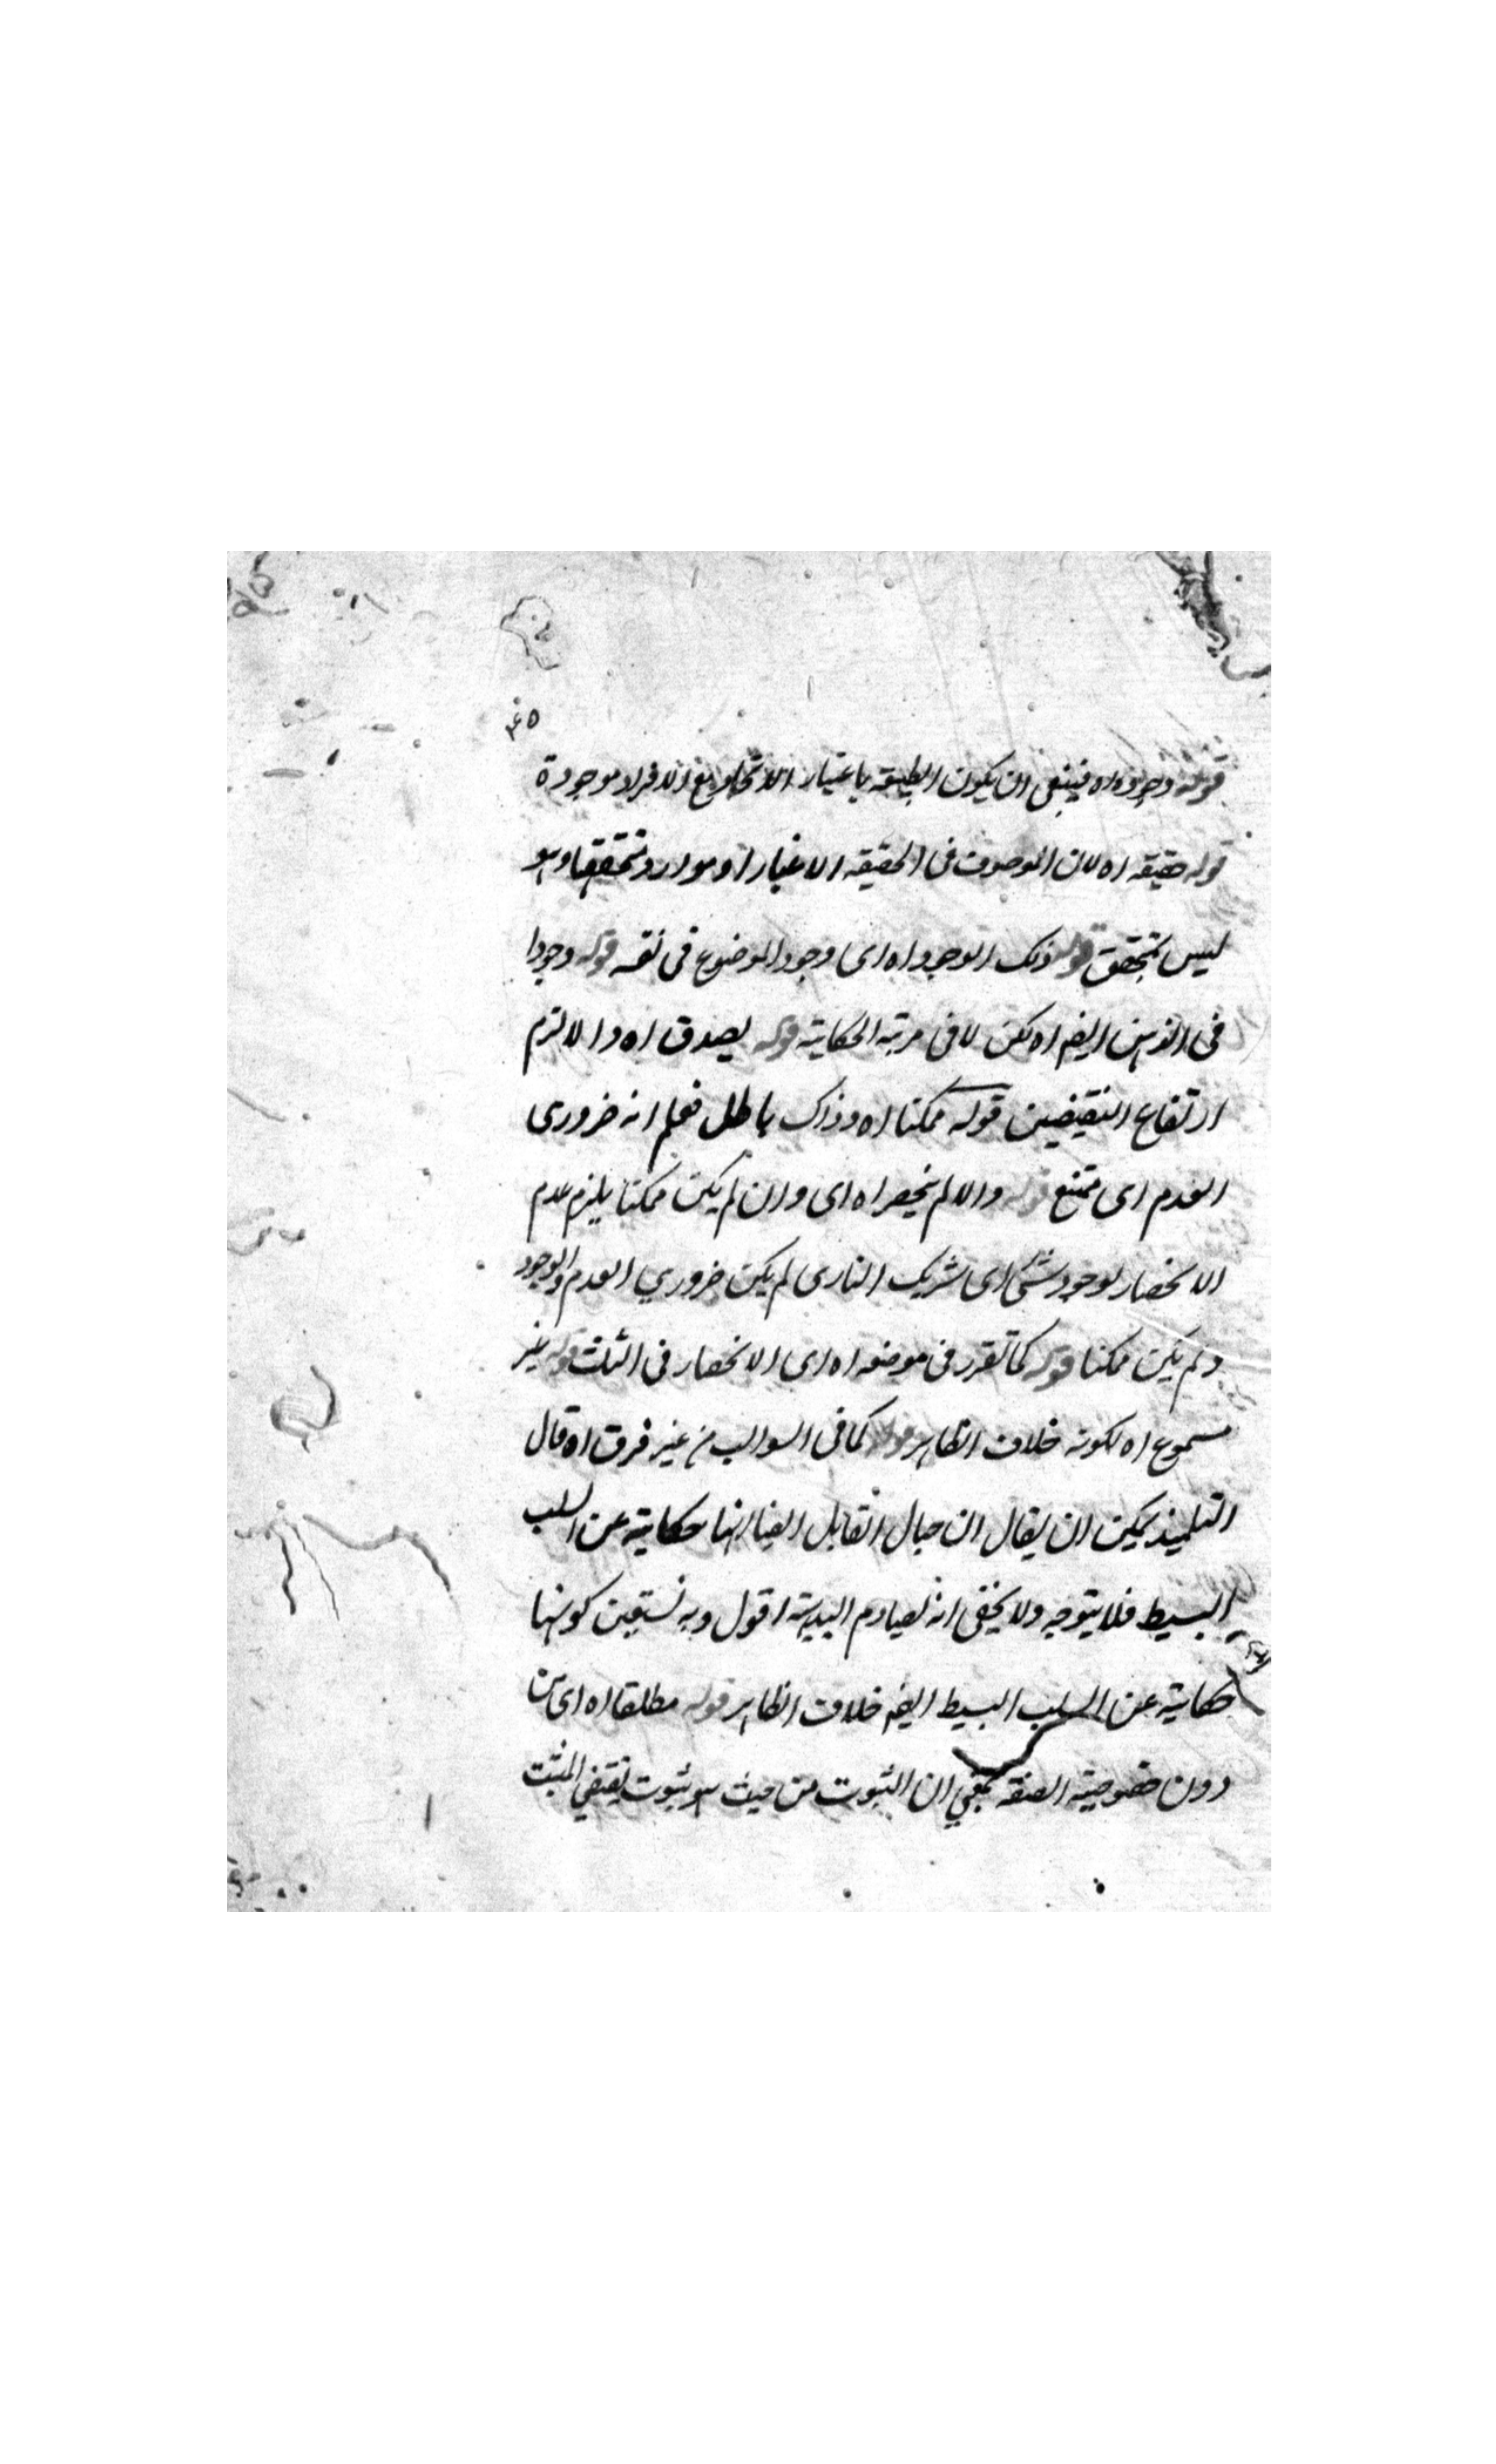 ۴۵
قوله وجوده اه فينبغى ان يكون الطبيعة باعتبار الاتحاد مع الافراد موجودة
قوله حقيقة اه لان الموصوف فى الحقيقه الاغيار او موارد تحققها وهو
ليس بتحقق قوله ذلك الوجود اه اى وجود الموضوع فى نفسه قوله وجودا
فى الذهن ايضا اه لكن لا فى مرتبة الحكاية قوله يصدق اه والا لزم
ارتفاع النقيضين قوله ممكنا اه وذاك باطل فعلم انه ضرورى
العدم اى ممتنع قوله والا لم ينحصر اه اى وان لم يكن ممكنا يلزم عدم
الانحصار لوجود شئ اى شريك البارى لم يكن ضروري العدم والوجود
ولم يكن ممكنا قوله كما تقرر فى موضعه اه اى الانحصار فى الثلث قوله غير
مسموع اه لكونه خلاف الظاهر قوله كما فى السوالب من غير فرق اه قال
التلميذ يمكن ان يقال ان حال القابل ايضا انها حكاية عن السلب
البسيط فلا يتوجه ولا يخفى انه يصادم البديهة اقول وبه نستعين كونها
حكاية عن السلب البسيط ايضا خلاف الظاهر قوله مطلقا اه اى من
دون خصوصية الصفة بمعني ان الثبوت من حيث هو ثبوت يقتضي المثبت